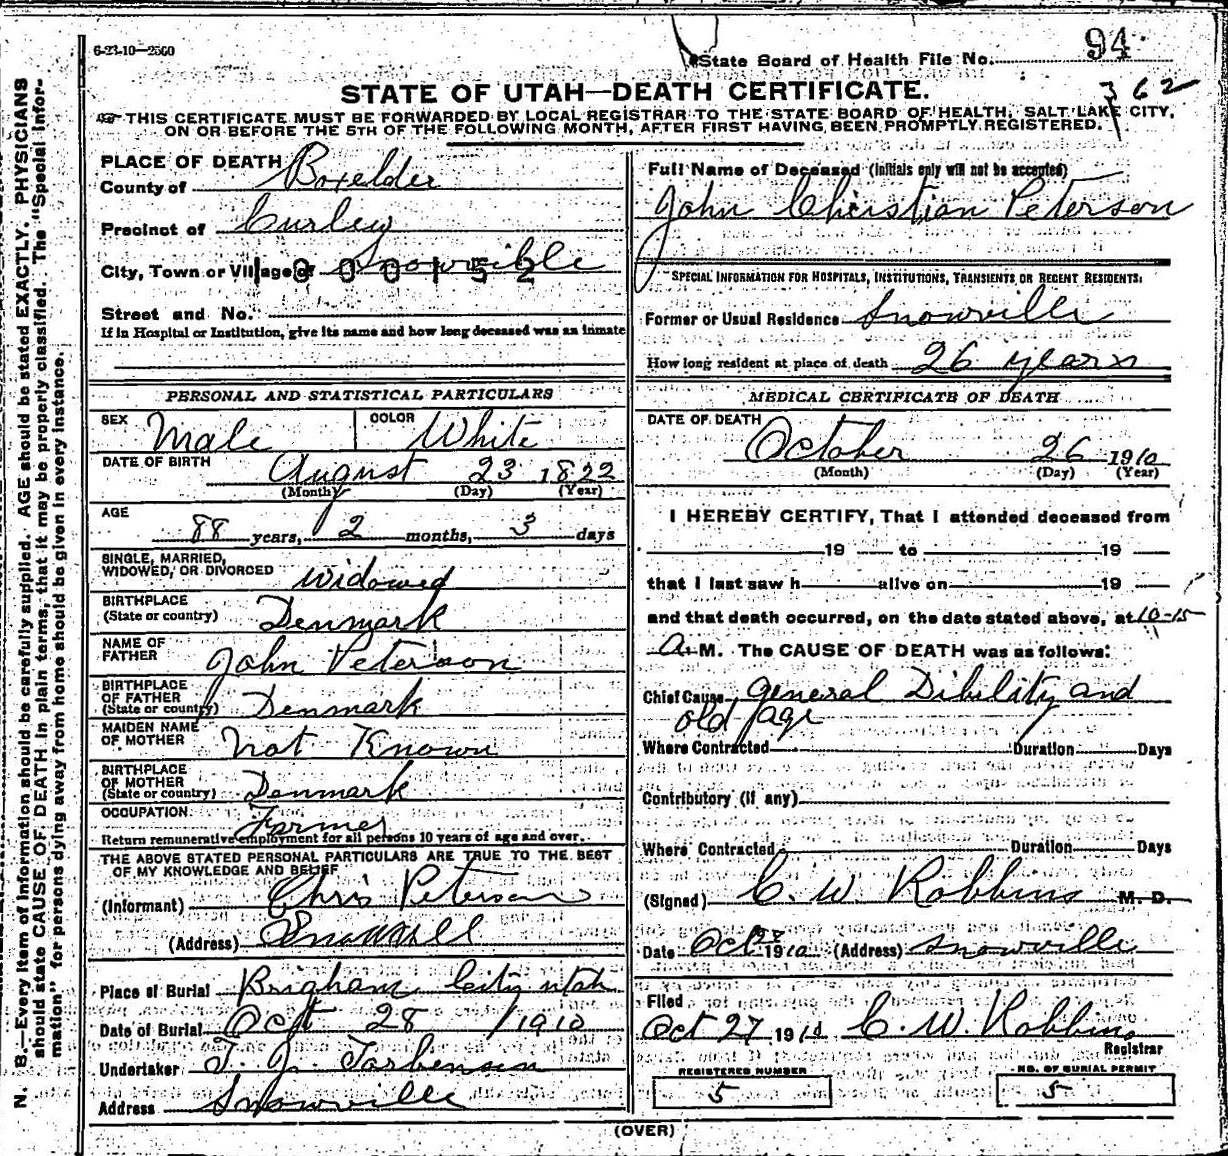 6-23-10-2500
State Board of Health File No. 94
362
STATE OF UTAH—DEATH CERTIFICATE.
THIS CERTIFICATE MUST BE FORWARDED BY LOCAL REGISTRAR TO THE STATE BOARD OF HEALTH, SALT LAKE CITY,
ON OR BEFORE THE 5TH OF THE FOLLOWING MONTH, AFTER FIRST HAVING BEEN PROMPTLY REGISTERED.
PLACE OF DEATH
County of Boxelder
Precinct of Curlew
City, Town or Village of Snowville
1000152
Street and No.
If in Hospital or Institution, give its name and how long deceased was an inmate
PERSONAL AND STATISTICAL PARTICULARS
SEX Male COLOR White
DATE OF BIRTH August 23 1822
(Month) (Day) (Year)
AGE
88 years, 2 months, 3 days
SINGLE, MARRIED,
WIDOWED, OR DIVORCED Widowed
BIRTHPLACE
(State or country) Denmark
NAME OF
FATHER John Peterson
BIRTHPLACE
OF FATHER
(State or country) Denmark
MAIDEN NAME
OF MOTHER not Known
BIRTHPLACE
OF MOTHER
(State or country) Denmark
OCCUPATION Farmer
Return remunerative employment for all persons 10 years of age and over.
THE ABOVE STATED PERSONAL PARTICULARS ARE TRUE TO THE BEST
OF MY KNOWLEDGE AND BELIEF
(Informant) Chris Peterson
(Address)
Place of Burial Brigham City utah
Date of Burial Oct 28 / 1910
Undertaker T. J. Torbensen
Address Snowville
Full Name of Deceased (Initials only will not be accepted)
John Christian Peterson
SPECIAL INFORMATION FOR HOSPITALS, INSTITUTIONS, TRANSIENTS OR RECENT RESIDENTS:
Former or Usual Residence Snowville
How long resident at place of death 26 years
MEDICAL CERTIFICATE OF DEATH
DATE OF DEATH
October 26 1910
(Month) (Day) (Year)
I HEREBY CERTIFY, That I attended deceased from
19 to 19
that I last saw h alive on 19
and that death occurred, on the date stated above, at 10-15
A. M. The CAUSE OF DEATH was as follows:
Chief Cause general Dibility and
old age
Where Contracted Duration Days
Contributory (if any)
Where Contracted Duration Days
(Signed) C. W. Robbins M. D.
Date Oct 28 1910 (Address) Snowville
Filed
Oct 27 1910 C. W. Robbins
Registrar
REGISTERED NUMBER
5
NO. OF BURIAL PERMIT
5
(OVER)
N. B.—Every item of information should be carefully supplied. AGE should be stated EXACTLY. PHYSICIANS
should state CAUSE OF DEATH in plain terms, that it may be properly classified. The "Special Infor-
mation" for persons dying away from home should be given in every instance.